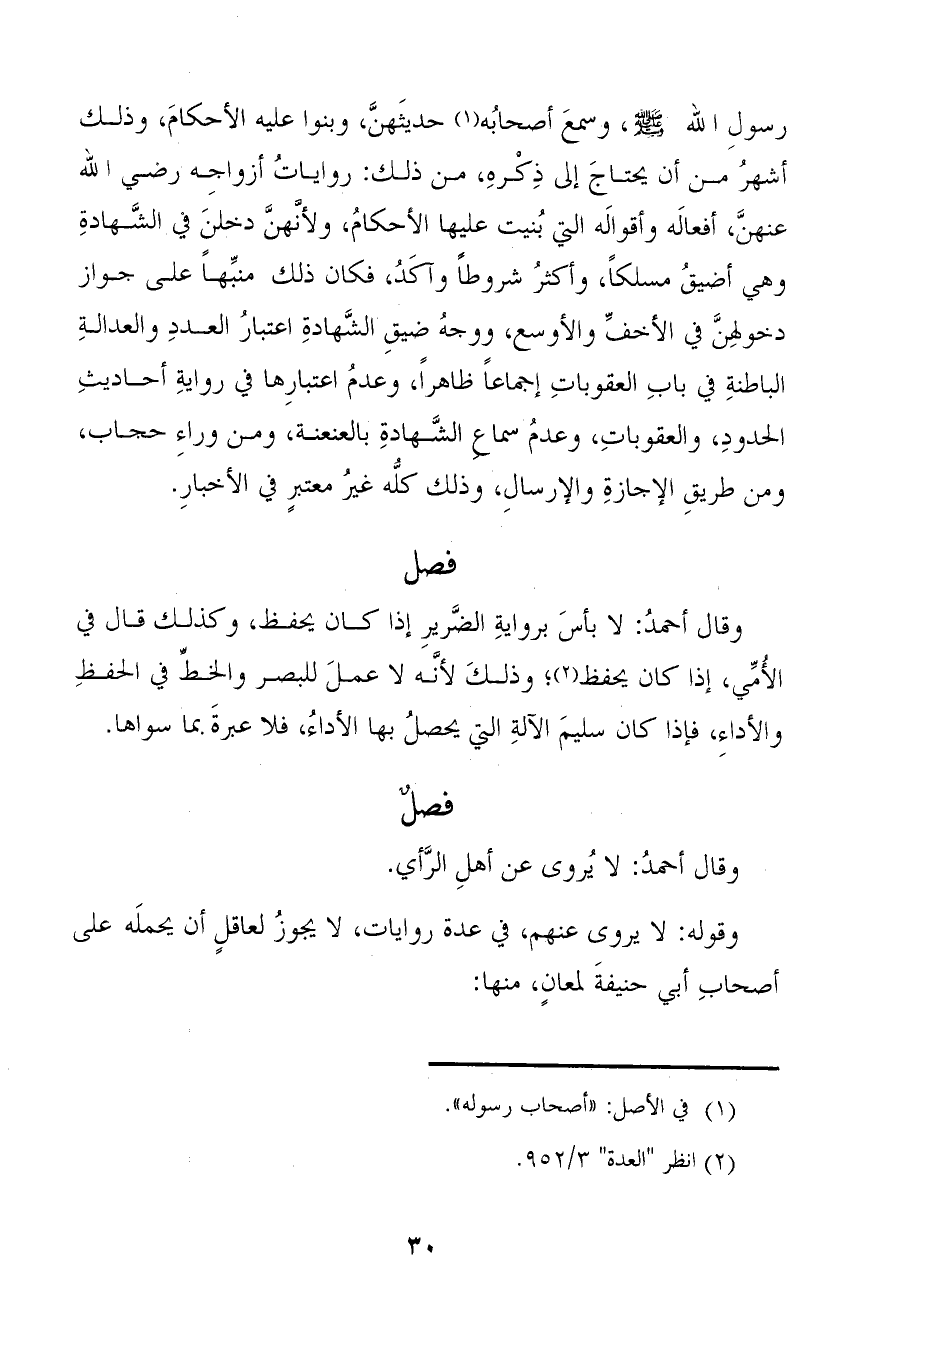 رسولِ الله ﷺ، وسمعَ أصحابُه(١) حديثَهنَّ، وبنوا عليه الأحكامَ، وذلك
أشهرُ من أن يحتاجَ إلى ذِكْرِه، من ذلك: رواياتُ أزواجِه رضي الله
عنهنَّ، أفعالَه وأقوالَه التي بُنيت عليها الأحكامُ، ولأنَّهنَّ دخلنَ في الشَّهادةِ
وهي أضيقُ مسلكاً، وأكثرُ شروطاً وآكَدُ، فكان ذلك منبِّهاً على جواز
دخولهِنَّ في الأخفِّ والأوسع، ووجهُ ضيقِ الشَّهادةِ اعتبارُ العددِ والعدالةِ
الباطنةِ في بابِ العقوباتِ إجماعاً ظاهراً، وعدمُ اعتبارِها في روايةِ أحاديثِ
الحدودِ، والعقوباتِ، وعدمُ سماعِ الشَّهادةِ بالعنعنة، ومن وراءِ حجاب،
ومن طريقِ الإجازةِ والإرسالِ، وذلك كلُّه غيرُ معتبرٍ في الأخبارِ.
فصل
وقال أحمدُ: لا بأسَ بروايةِ الضَّريرِ إذا كان يحفظ، وكذلك قال في
الأُمِّي، إذا كان يحفظ(٢)؛ وذلكَ لأنَّه لا عملَ للبصر والخطِّ في الحفظِ
والأداءِ، فإذا كان سليمَ الآلةِ التي يحصلُ بها الأداءُ، فلا عبرةَ بما سواها.
فصلٌ
وقال أحمدُ: لا يُروى عن أهلِ الرَّأي.
وقوله: لا يروى عنهم، في عدة روايات، لا يجوزُ لعاقلٍ أن يحملَه على
أصحابِ أبي حنيفةَ لمعانٍ، منها:
(١) في الأصل: «أصحاب رسوله».
(٢) انظر "العدة" ٩٥٢/٣.
٣٠